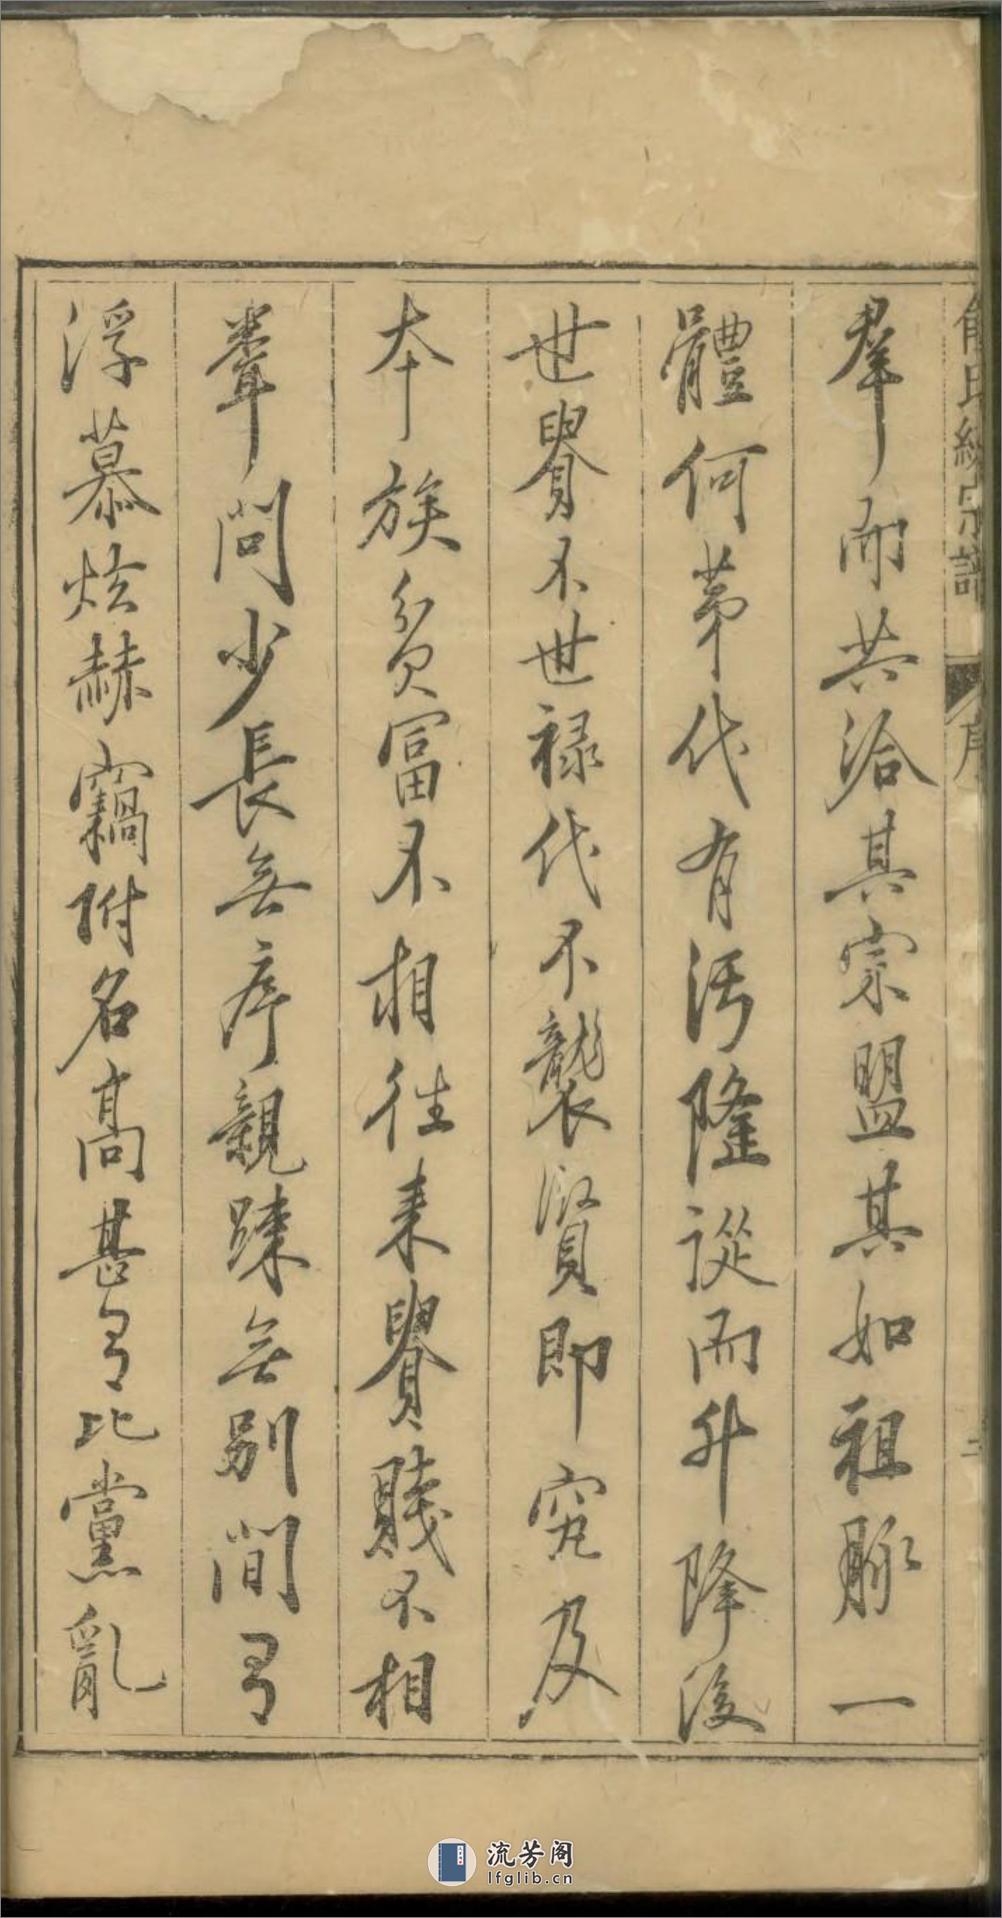 熊氏統宗譜 序 二
羣而共洽其宗盟其如祖脉一
體何苐代有污隆從而升降後
世貴不世禄代不襲賢即究及
本族貧富不相往来貴賤不相
聲問少長無序親踈無別間有
浮慕炫赫竊附名高甚有比黨亂
流芳阁
lfglib.cn